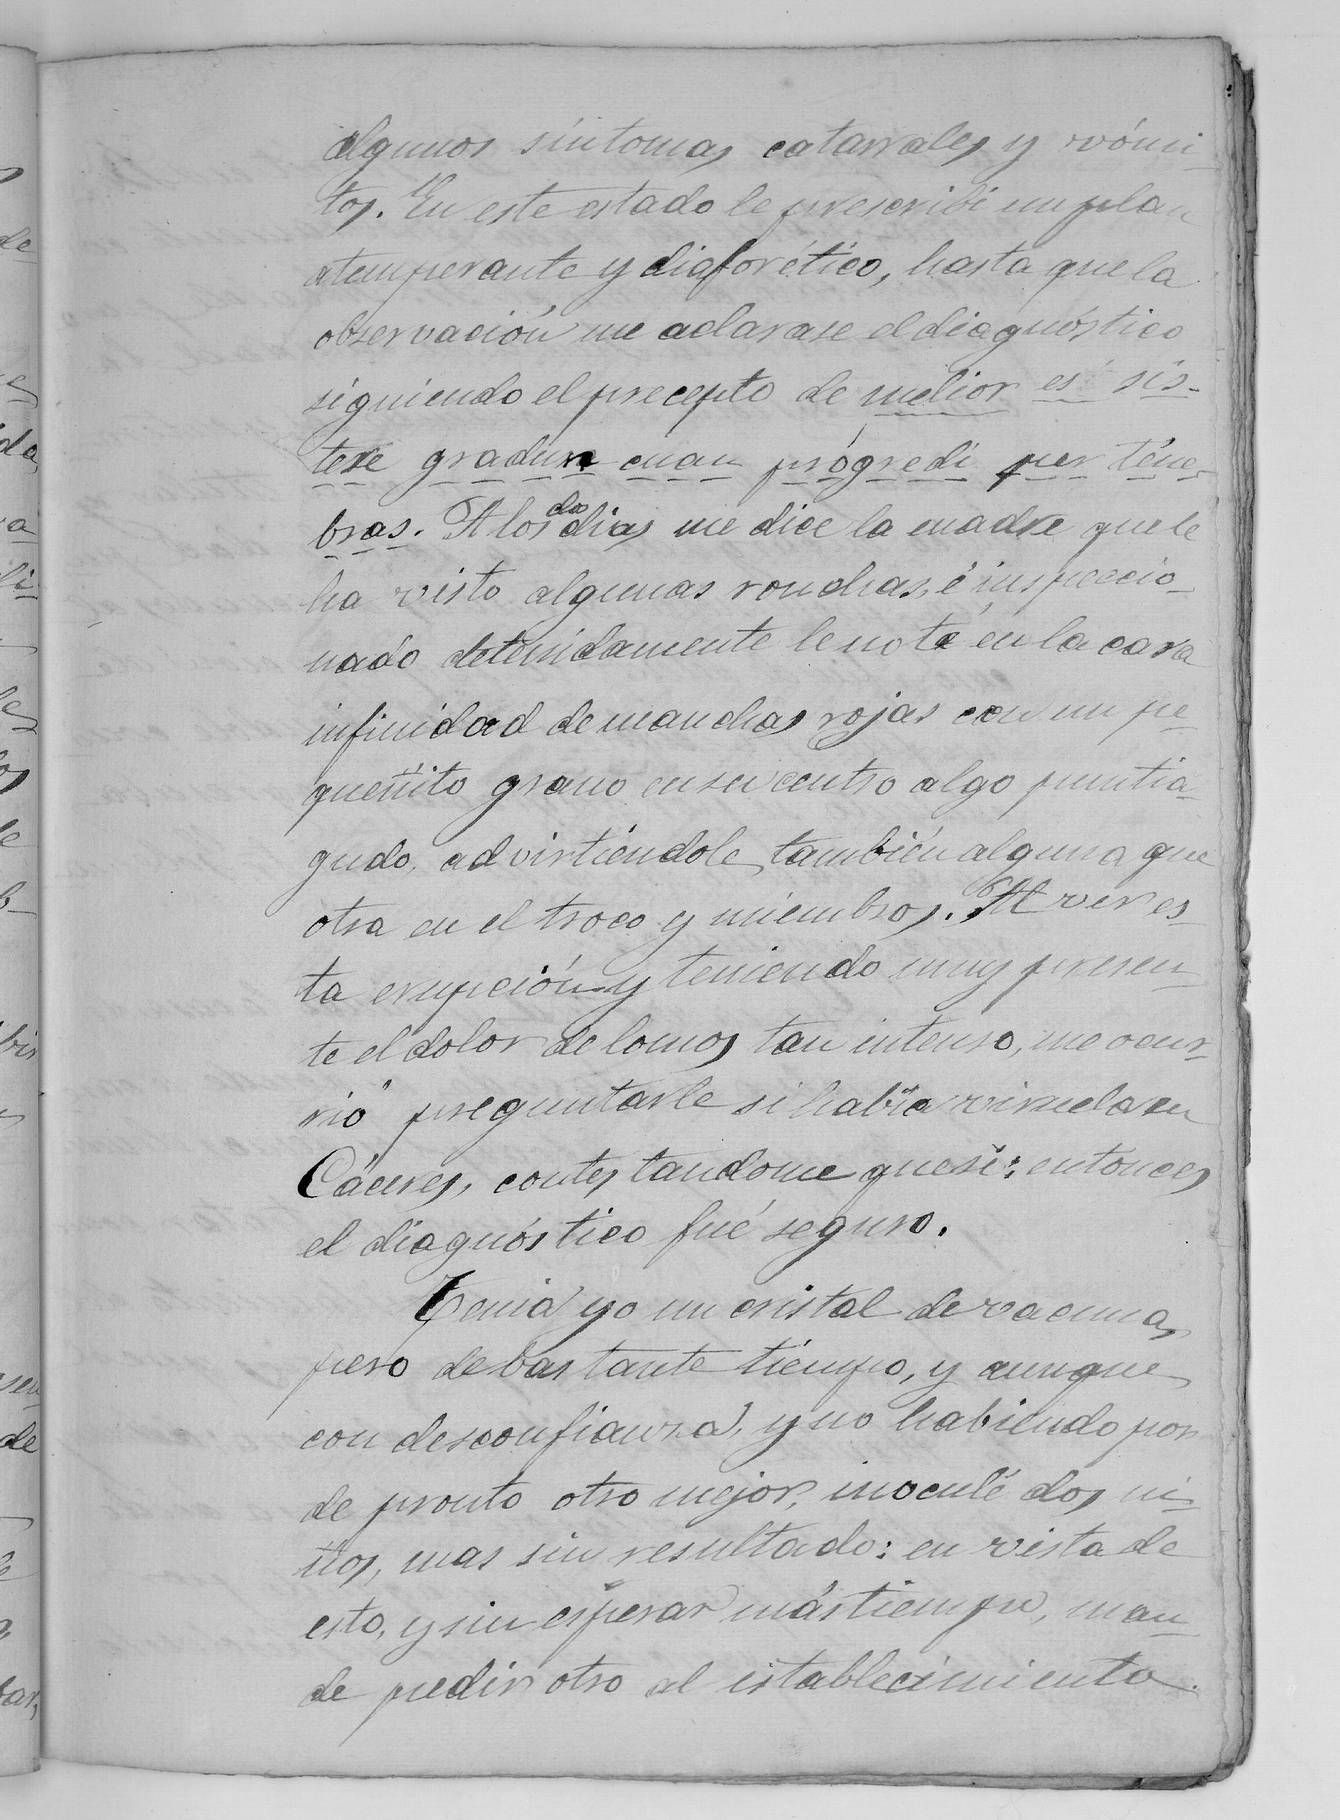 algunos síntomas catarrales y vómi-
tos. En este estado le prescribí un plan
atemperante y diaforético, hasta que la
observación me aclarase el diagnóstico
siguiendo el precepto de melior es sis-
tere gradum cuan prógredi per téne-
bras. A los dos dias me dice la madre que le
ha visto algunas ronchas, é inspeccio-
nado detenidamente le noté en la cara
infinidad de manchas rojas con un pe-
queñito grano en su centro algo puntia-
gudo, advirtiéndole, también alguna que
otra en el troco y miembros. Al ver es-
ta erupción y teniendo muy presen-
te el dolor de lomos tan intenso, me ocur-
rió preguntarle si había viruela en
Cáceres, contestandome que sí: entonces
el diagnóstico fué seguro.
Tenia yo un cristal de vacuna,
pero de bastante tiempo, y aunque
con desconfianza, y no habiendo por
de pronto otro mejor, inoculé dos ni-
ños, mas sin resultado: en vista de
esto, y sin esperar más tiempo, man-
de pedir otro al establecimiento.